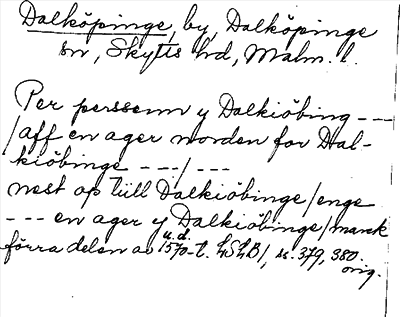 Dalköpinge, by, Dalköpinge
sn, Skytts hd, Malm. l.
Per perssenn y Dalkiöbing ---
/aff en ager norden for Dal-
kiöbinge ---/---
nest op till Dalkiöbinge/enge
--- en ager y Dalkiöbinge/marck
u.d.
förra delen av 1570-t. LSLB/, s. 379, 380.
orig.